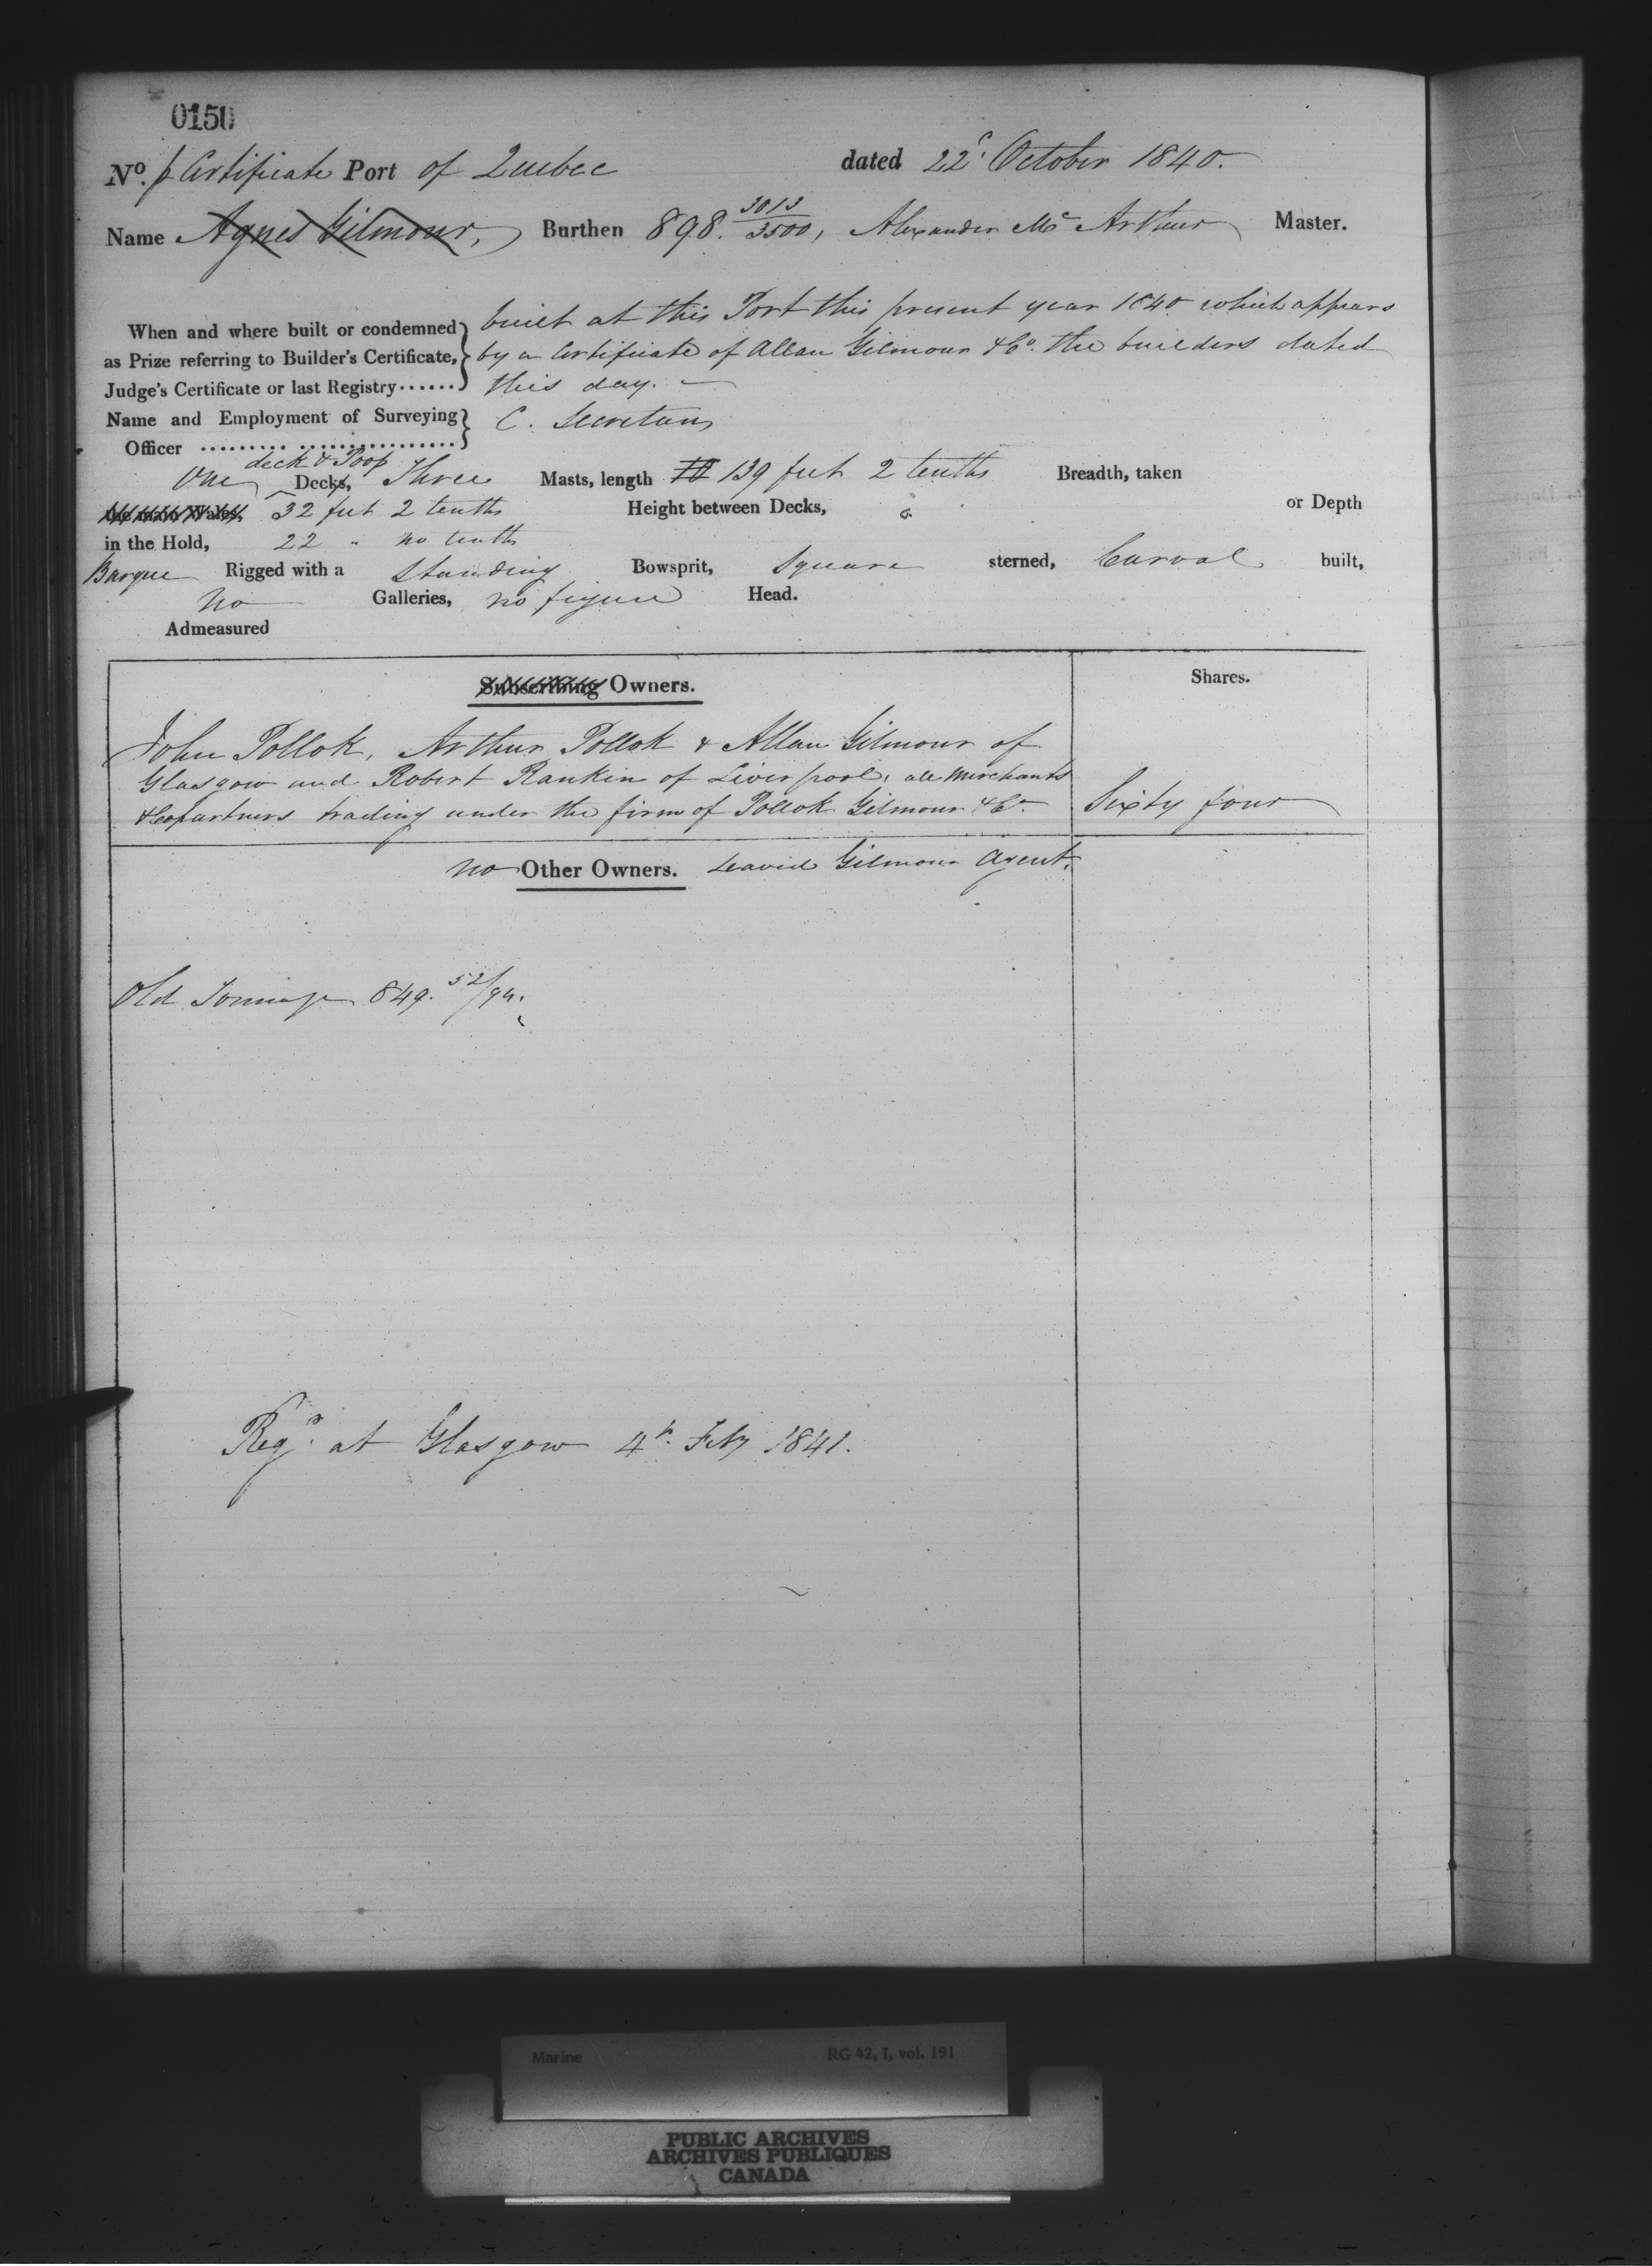 0150
No. p Certificate Port of Quebec dated 22d. October 1840.
Name Agnes Gilmour, Burthen 898. 3013/3500, Alexander Mc Arthur Master.
When and where built or condemned built at this Port this present year 1840 which appears
as Prize referring to Builder's Certificate, by a Certificate of Allan Gilmour & Co. the builders dated
Judge's Certificate or last Registry...... this day. —
Name and Employment of Surveying C. Secretan
Officer ......... ................
deck & Poop
One Decks, Three Masts, length 139 feet 2 tenths Breadth, taken
the main Wales, 32 feet 2 tenths Height between Decks, or Depth
in the Hold, 22 " no tenths
Barque Rigged with a Standing Bowsprit, Square sterned, Carvel built,
No Galleries, no figure Head.
Admeasured
Subscribing Owners. Shares.
John Pollok, Arthur Pollok & Allan Gilmour of
Glasgow and Robert Rankin of Liverpool, all Merchants
& Copartners trading under the firm of Pollok Gilmour & Co. Sixty four
no Other Owners. David Gilmour Agent.
Old Tonnage 849. 52/94.
Regd. at Glasgow 4th. Feby 1841.
Marine RG 42, I, vol. 191
PUBLIC ARCHIVES
ARCHIVES PUBLIQUES
CANADA